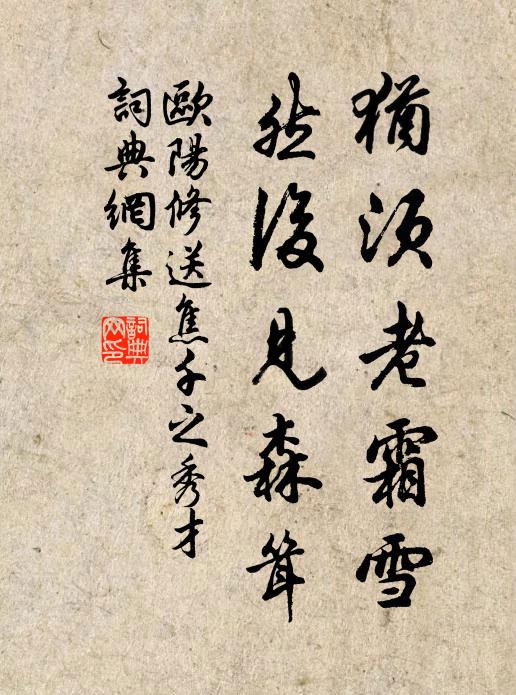 猶須老霜雪
然後見森耸
歐陽修送焦千之秀才
詞典網集
詞典網印